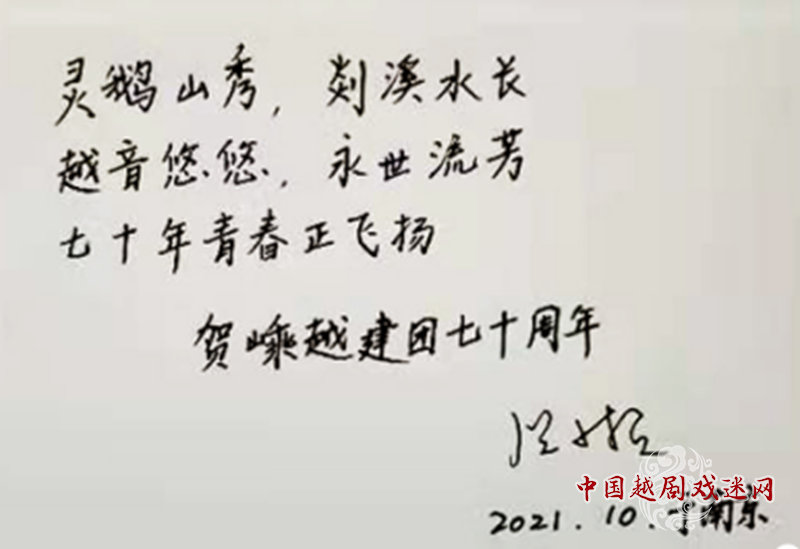 灵鹅山秀，剡溪水长
越音悠悠，永世流芳
七十年青春正飞扬
贺嵊越建团七十周年
中国越剧戏迷网
2021.10.于南京